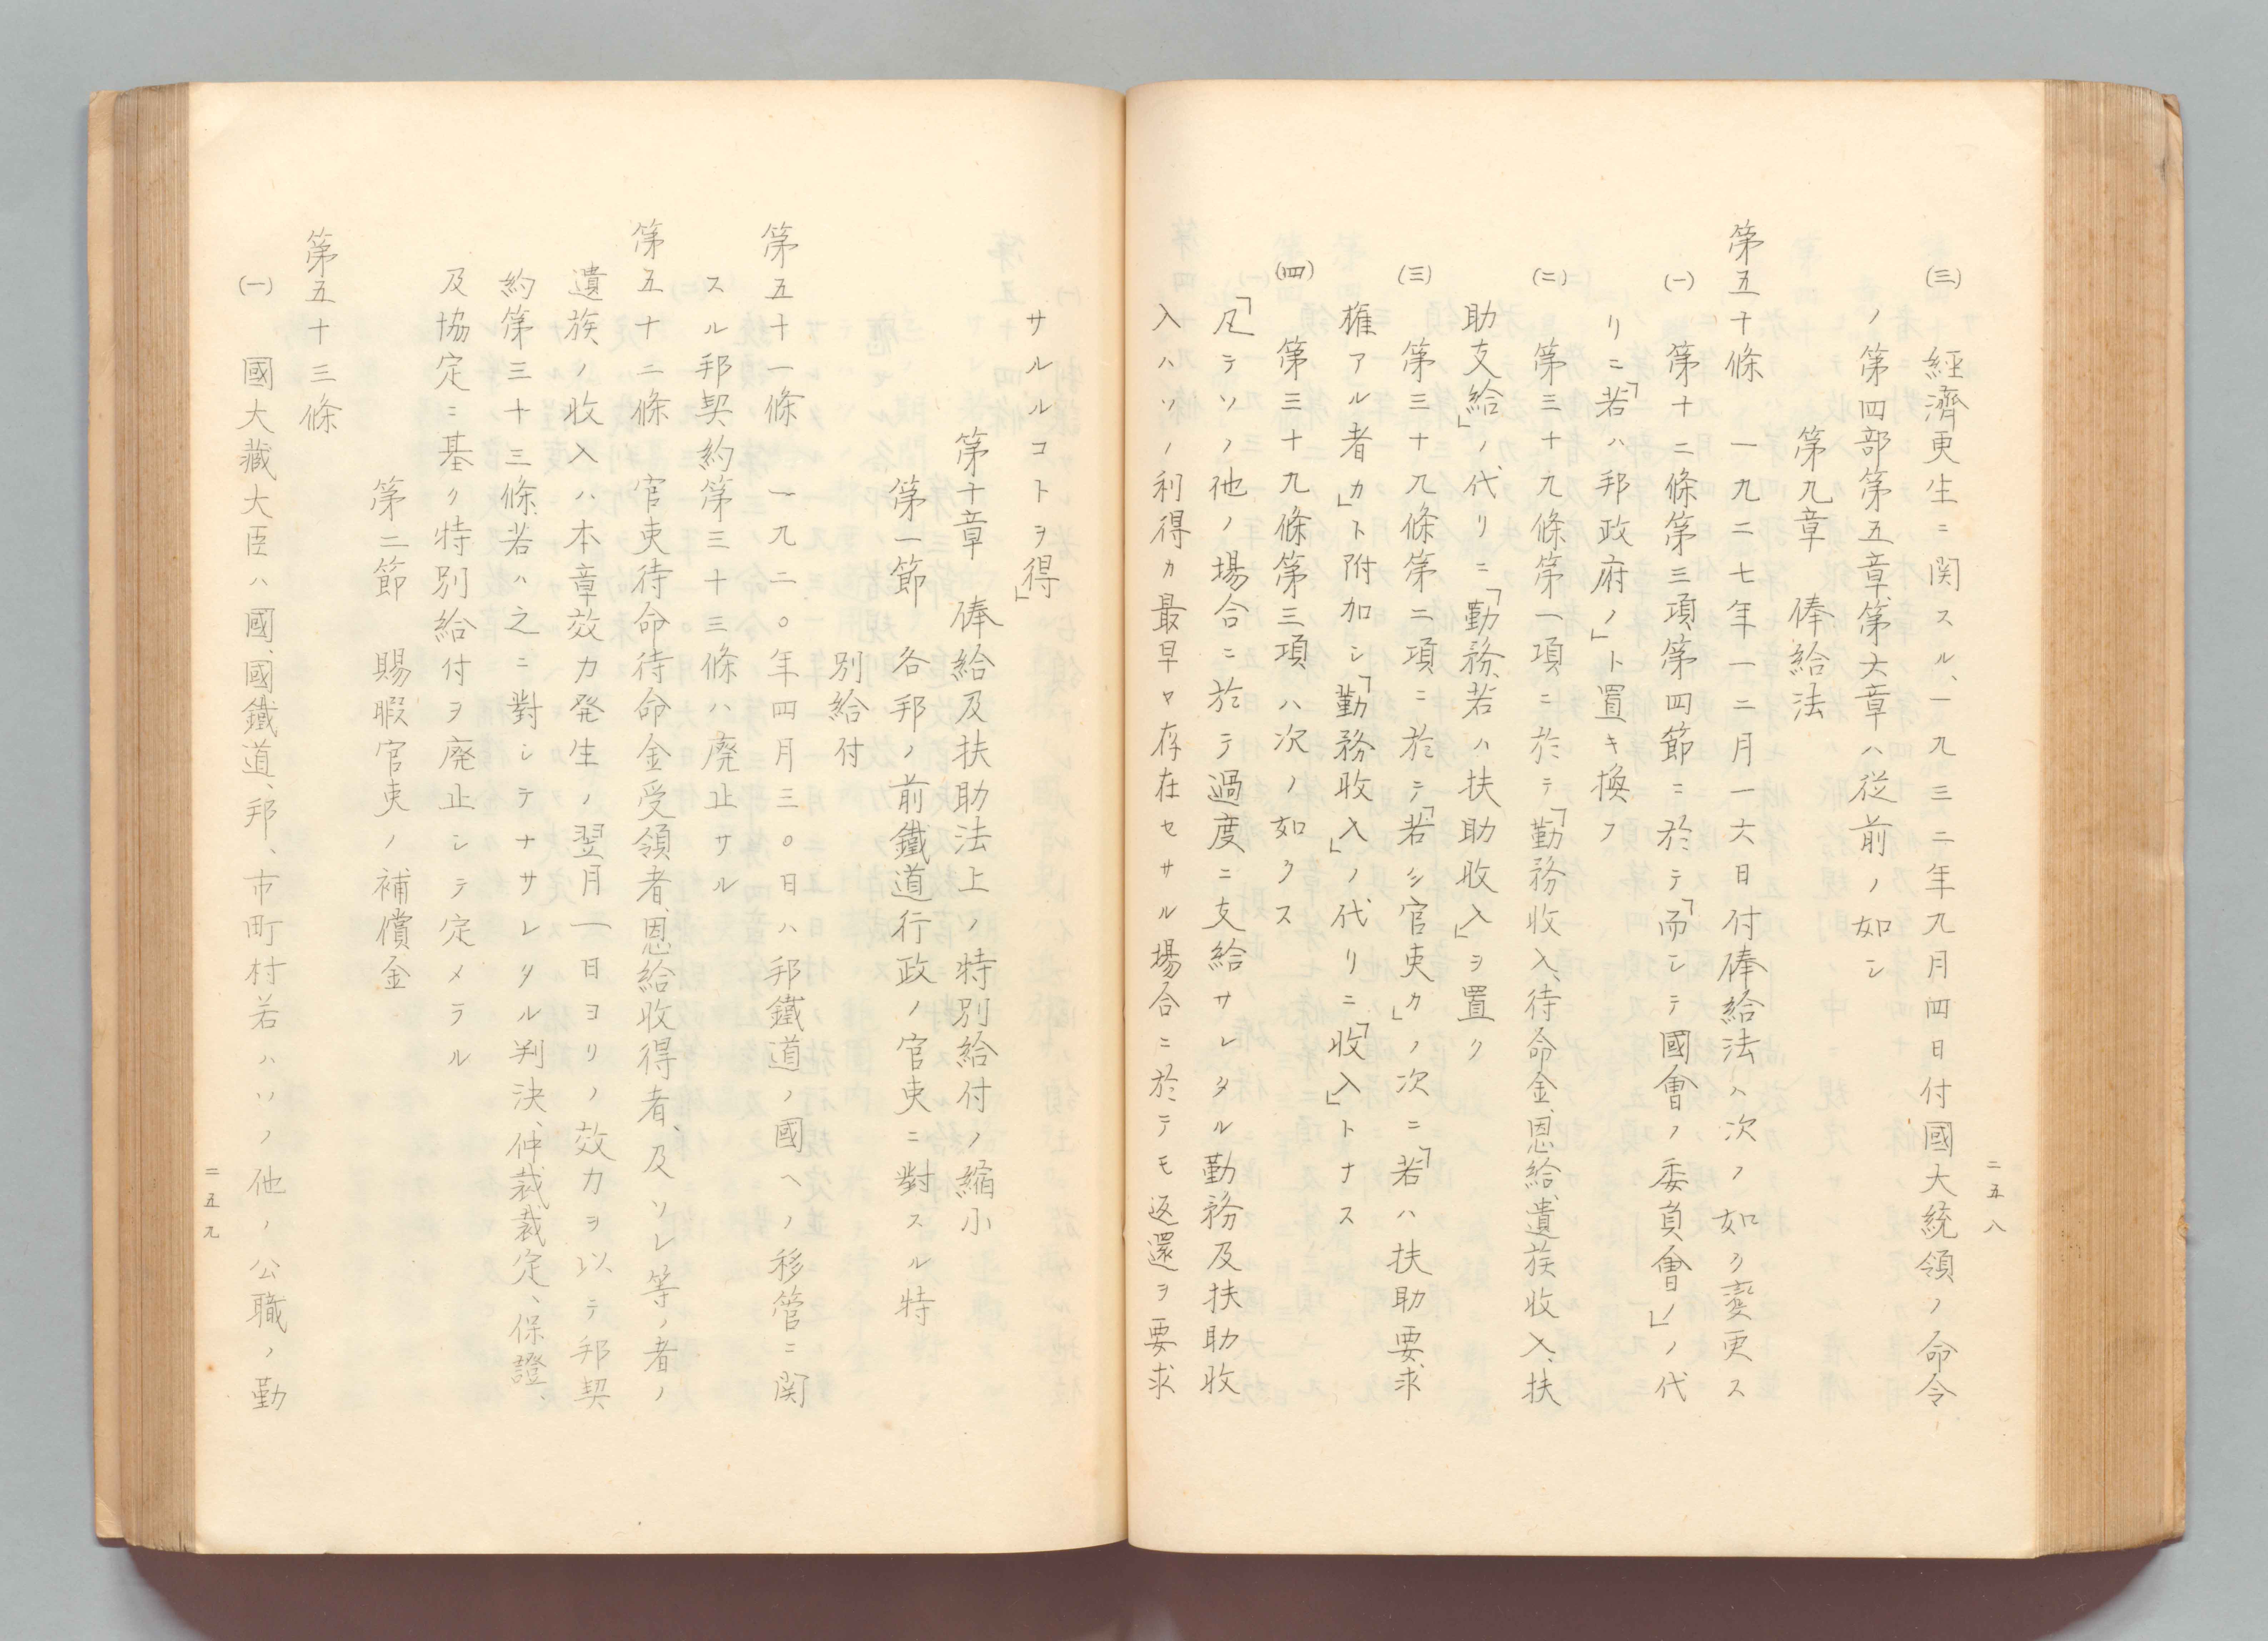 二五八
(三)　經濟更生ニ関スル、一九三二年九月四日付國大統領ノ命令
ノ第四部第五章、第六章ハ従前ノ如シ
第九章　俸給法
第五十條　一九二七年一二月一六日付俸給法ハ次ノ如ク變更ス
(一)　第十二條第三項第四節ニ於テ「而シテ國會ノ委員會ノ」ノ代
リニ「若ハ邦政府ノ」ト置キ換フ
(二)　第三十九條第一項ニ於テ「勤務收入、待命金、恩給、遺族收入、扶
助支給」ノ代リニ「勤務、若ハ扶助收入」ヲ置ク
(三)　第三十九條第二項ニ於テ「若シ官吏カ」ノ次ニ「若ハ扶助要求
権アル者カ」ト附加シ「勤務收入」ノ代リニ「收入」トナス
(四)　第三十九條第三項ハ次ノ如クス
「凡テソノ他ノ場合ニ於テ過度ニ支給サレタル勤務及扶助收
入ハソノ利得カ最早ヤ存在セサル場合ニ於テモ返還ヲ要求
サルルコトヲ得」
第十章　俸給及扶助法上ノ特別給付ノ縮小
第一節　各邦ノ前鐵道行政ノ官吏ニ對スル特
別給付
第五十一條　一九二〇年四月三〇日ハ邦鐵道ノ國ヘノ移管ニ関
スル邦契約第三十三條ハ廃止サル
第五十二條　官吏待命待命金受領者、恩給收得者、及ソレ等ノ者ノ
遺族ノ收入ハ本章效力発生ノ翌月一日ヨリノ效力ヲ以テ邦契
約第三十三條、若ハ之ニ對シテナサレタル判決、仲裁裁定、保證、
及協定ニ基ク特別給付ヲ廃止シテ定メラル
第二節　賜暇官吏ノ補償金
第五十三條
(一)　國大藏大臣ハ國、國鐵道、邦、市町村若ハソノ他ノ公職ノ勤
二五九